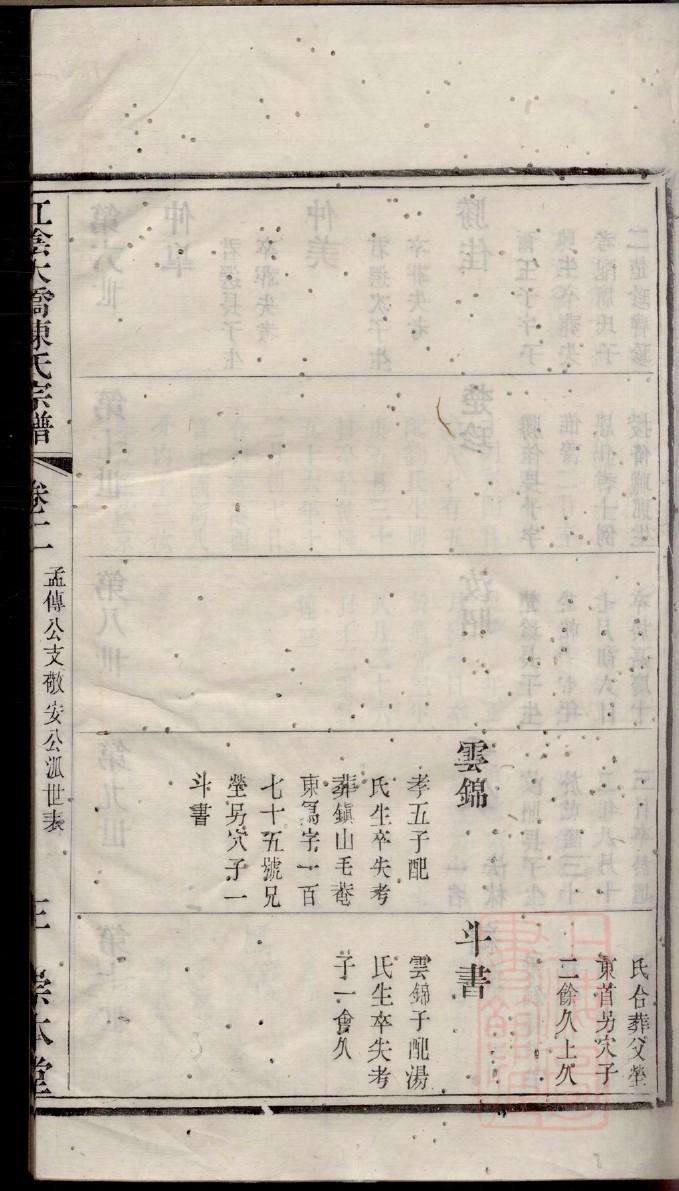 氏合葬父塋
東首另穴子
二餘久上久
雲錦
孝五子配
氏生卒失考
葬鎮山毛菴
東寫字一百
七十五號兄
塋另穴子一
斗書
斗書
雲錦子配湯
氏生卒失考
子一會久
江陰大橋陳氏宗譜
卷二
孟傳公支敬安公派世表
三
崇本堂